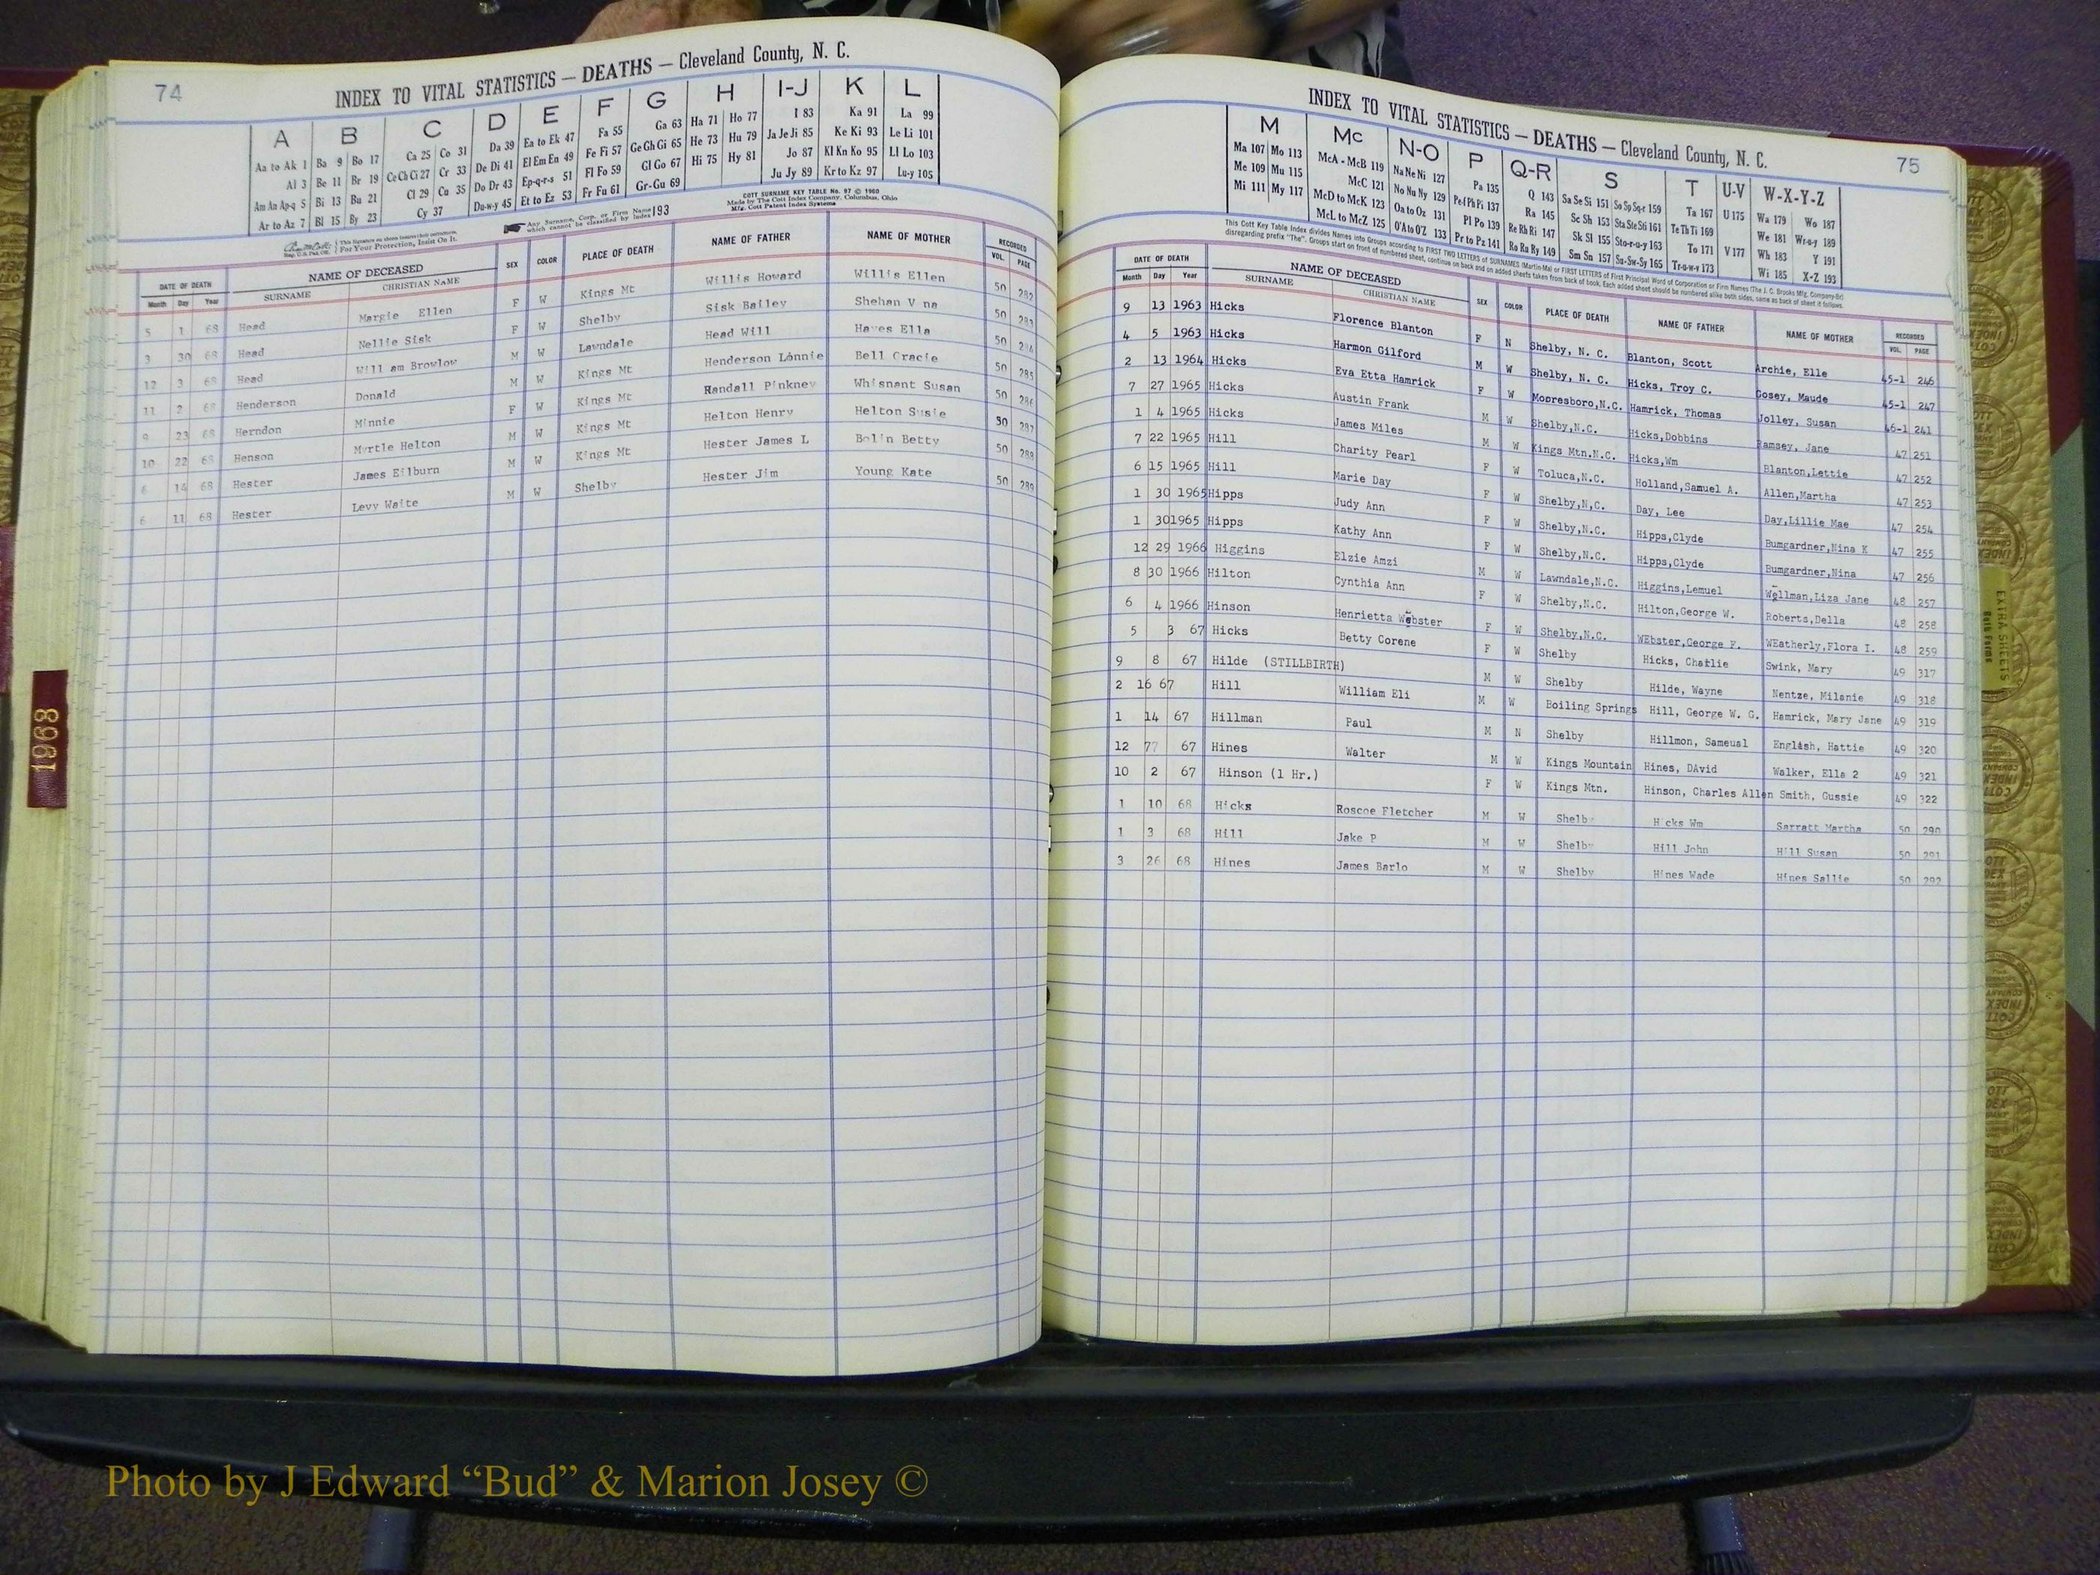 74
INDEX TO VITAL STATISTICS — DEATHS — Cleveland County, N. C.
A B C D E F G H I-J K L
Aa to Ak 1 Ba 9 Bo 17 Ca 25 Co 31 Da 39 Ea to Ek 47 Fa 55 Ga 63 Ha 71 Ho 77 I 83 Ka 91 La 99
Al 3 Be 11 Br 19 Ce Ch Ci 27 Cr 33 De Di 41 El Em En 49 Fe Fi 57 Ge Gh Gi 65 He 73 Hu 79 Ja Je Ji 85 Ke Ki 93 Le Li 101
Am An Ap-q 5 Bi 13 Bu 21 Cl 29 Cu 35 Do Dr 43 Ep-q-r-s 51 Fl Fo 59 Gl Go 67 Hi 75 Hy 81 Jo 87 Kl Kn Ko 95 Ll Lo 103
Ar to Az 7 Bl 15 By 23 Cy 37 Du-w-y 45 Et to Ez 53 Fr Fu 61 Gr-Gu 69 Ju Jy 89 Kr to Kz 97 Lu-y 105
For Your Protection, Insist On It.
Any Surname, Corp. or Firm Name which cannot be classified by Index 193
COTT SURNAME KEY TABLE No. 97 © 1960
Made by The Cott Index Company, Columbus, Ohio
Mfg. Cott Patent Index Systems
DATE OF DEATH NAME OF DECEASED SEX COLOR PLACE OF DEATH NAME OF FATHER NAME OF MOTHER RECORDED
Month Day Year SURNAME CHRISTIAN NAME VOL. PAGE
5 1 68 Head Margie Ellen F W Kings Mt Willis Howard Willis Ellen 50 282
3 30 68 Head Nellie Sisk F W Shelby Sisk Bailey Shehan V na 50 283
12 3 68 Head Will am Browlow M W Lawndale Head Will Hawes Ella 50 284
11 2 68 Henderson Donald M W Kings Mt Henderson Lonnie Bell Gracie 50 285
9 23 68 Herndon Minnie F W Kings Mt Randall Pinkney Whisnant Susan 50 286
10 22 68 Henson Myrtle Helton M W Kings Mt Helton Henry Helton Susie 50 287
6 14 68 Hester James Eilburn M W Kings Mt Hester James L Bolin Betty 50 288
6 11 68 Hester Levy Waite M W Shelby Hester Jim Young Kate 50 289
1968
INDEX TO VITAL STATISTICS — DEATHS — Cleveland County, N. C.
75
M Mc N-O P Q-R S T U-V W-X-Y-Z
Ma 107 Mo 113 McA - McB 119 Na Ne Ni 127 Pa 135 Q 143 Sa Se Si 151 So Sp Sq-r 159 Ta 167 U 175 Wa 179 Wo 187
Me 109 Mu 115 McC 121 No Nu Ny 129 Pe f Ph Pi 137 Ra 145 Sc Sh 153 Sta Ste Sti 161 Te Th Ti 169 We 181 Wr-u-y 189
Mi 111 My 117 McD to McK 123 Oa to Oz 131 Pl Po 139 Re Rh Ri 147 Sk Sl 155 Sto-r-u-y 163 To 171 V 177 Wh 183 Y 191
McL to McZ 125 O'A to O'Z 133 Pr to Pz 141 Ro Ru Ry 149 Sm Sn 157 Su-Sw-Sy 165 Tr-u-w-y 173 Wi 185 X-Z 193
This Cott Key Table Index divides Names into Groups according to FIRST TWO LETTERS of SURNAMES (Martin-Ma) or FIRST LETTERS of First Principal Word of Corporation or Firm Names (The J. C. Brooks Mfg. Company-Br)
disregarding prefix "The". Groups start on front of numbered sheet, continue on back and on added sheets taken from back of book. Each added sheet should be numbered alike both sides, same as back of sheet it follows.
DATE OF DEATH NAME OF DECEASED SEX COLOR PLACE OF DEATH NAME OF FATHER NAME OF MOTHER RECORDED
Month Day Year SURNAME CHRISTIAN NAME VOL. PAGE
9 13 1963 Hicks Florence Blanton F N Shelby, N. C. Blanton, Scott Archie, Elle 45-1 246
4 5 1963 Hicks Harmon Gilford M W Shelby, N. C. Hicks, Troy C. Gosey, Maude 45-1 247
2 13 1964 Hicks Eva Etta Hamrick F W Mooresboro,N.C. Hamrick, Thomas Jolley, Susan 46-1 241
7 27 1965 Hicks Austin Frank M W Shelby,N.C. Hicks,Dobbins Ramsey, Jane 47 251
1 4 1965 Hicks James Miles M W Kings Mtn.N.C. Hicks,Wm Blanton,Lettie 47 252
7 22 1965 Hill Charity Pearl F W Toluca,N.C. Holland,Samuel A. Allen,Martha 47 253
6 15 1965 Hill Marie Day F W Shelby,N,C. Day, Lee Day,Lillie Mae 47 254
1 30 1965 Hipps Judy Ann F W Shelby,N.C. Hipps,Clyde Bumgardner,Nina K 47 255
1 30 1965 Hipps Kathy Ann F W Shelby,N.C. Hipps,Clyde Bumgardner,Nina 47 256
12 29 1966 Higgins Elzie Amzi M W Lawndale,N.C. Higgins,Lemuel Wellman,Liza Jane 48 257
8 30 1966 Hilton Cynthia Ann F W Shelby,N.C. Hilton,George W. Roberts,Della 48 258
6 4 1966 Hinson Henrietta Webster F W Shelby,N.C. WEbster,George F. WEatherly,Flora I. 48 259
5 3 67 Hicks Betty Corene F W Shelby Hicks, Charlie Swink, Mary 49 317
9 8 67 Hilde (STILLBIRTH) M W Shelby Hilde, Wayne Nentze, Milanie 49 318
2 16 67 Hill William Eli M W Boiling Springs Hill, George W. G. Hamrick, Mary Jane 49 319
1 14 67 Hillman Paul M N Shelby Hillmon, Sameusl English, Hattie 49 320
12 77 67 Hines Walter M W Kings Mountain Hines, DAvid Walker, Ella 2 49 321
10 2 67 Hinson (1 Hr.) F W Kings Mtn. Hinson, Charles Allen Smith, Gussie 49 322
1 10 68 Hicks Roscoe Fletcher M W Shelby H cks Wm Sarratt Martha 50 290
1 3 68 Hill Jake P M W Shelby Hill John Hill Susan 50 291
3 26 68 Hines James Barlo M W Shelby Hines Wade Hines Sallie 50 292
EXTRA SHEETS
Photo by J Edward “Bud” & Marion Josey ©